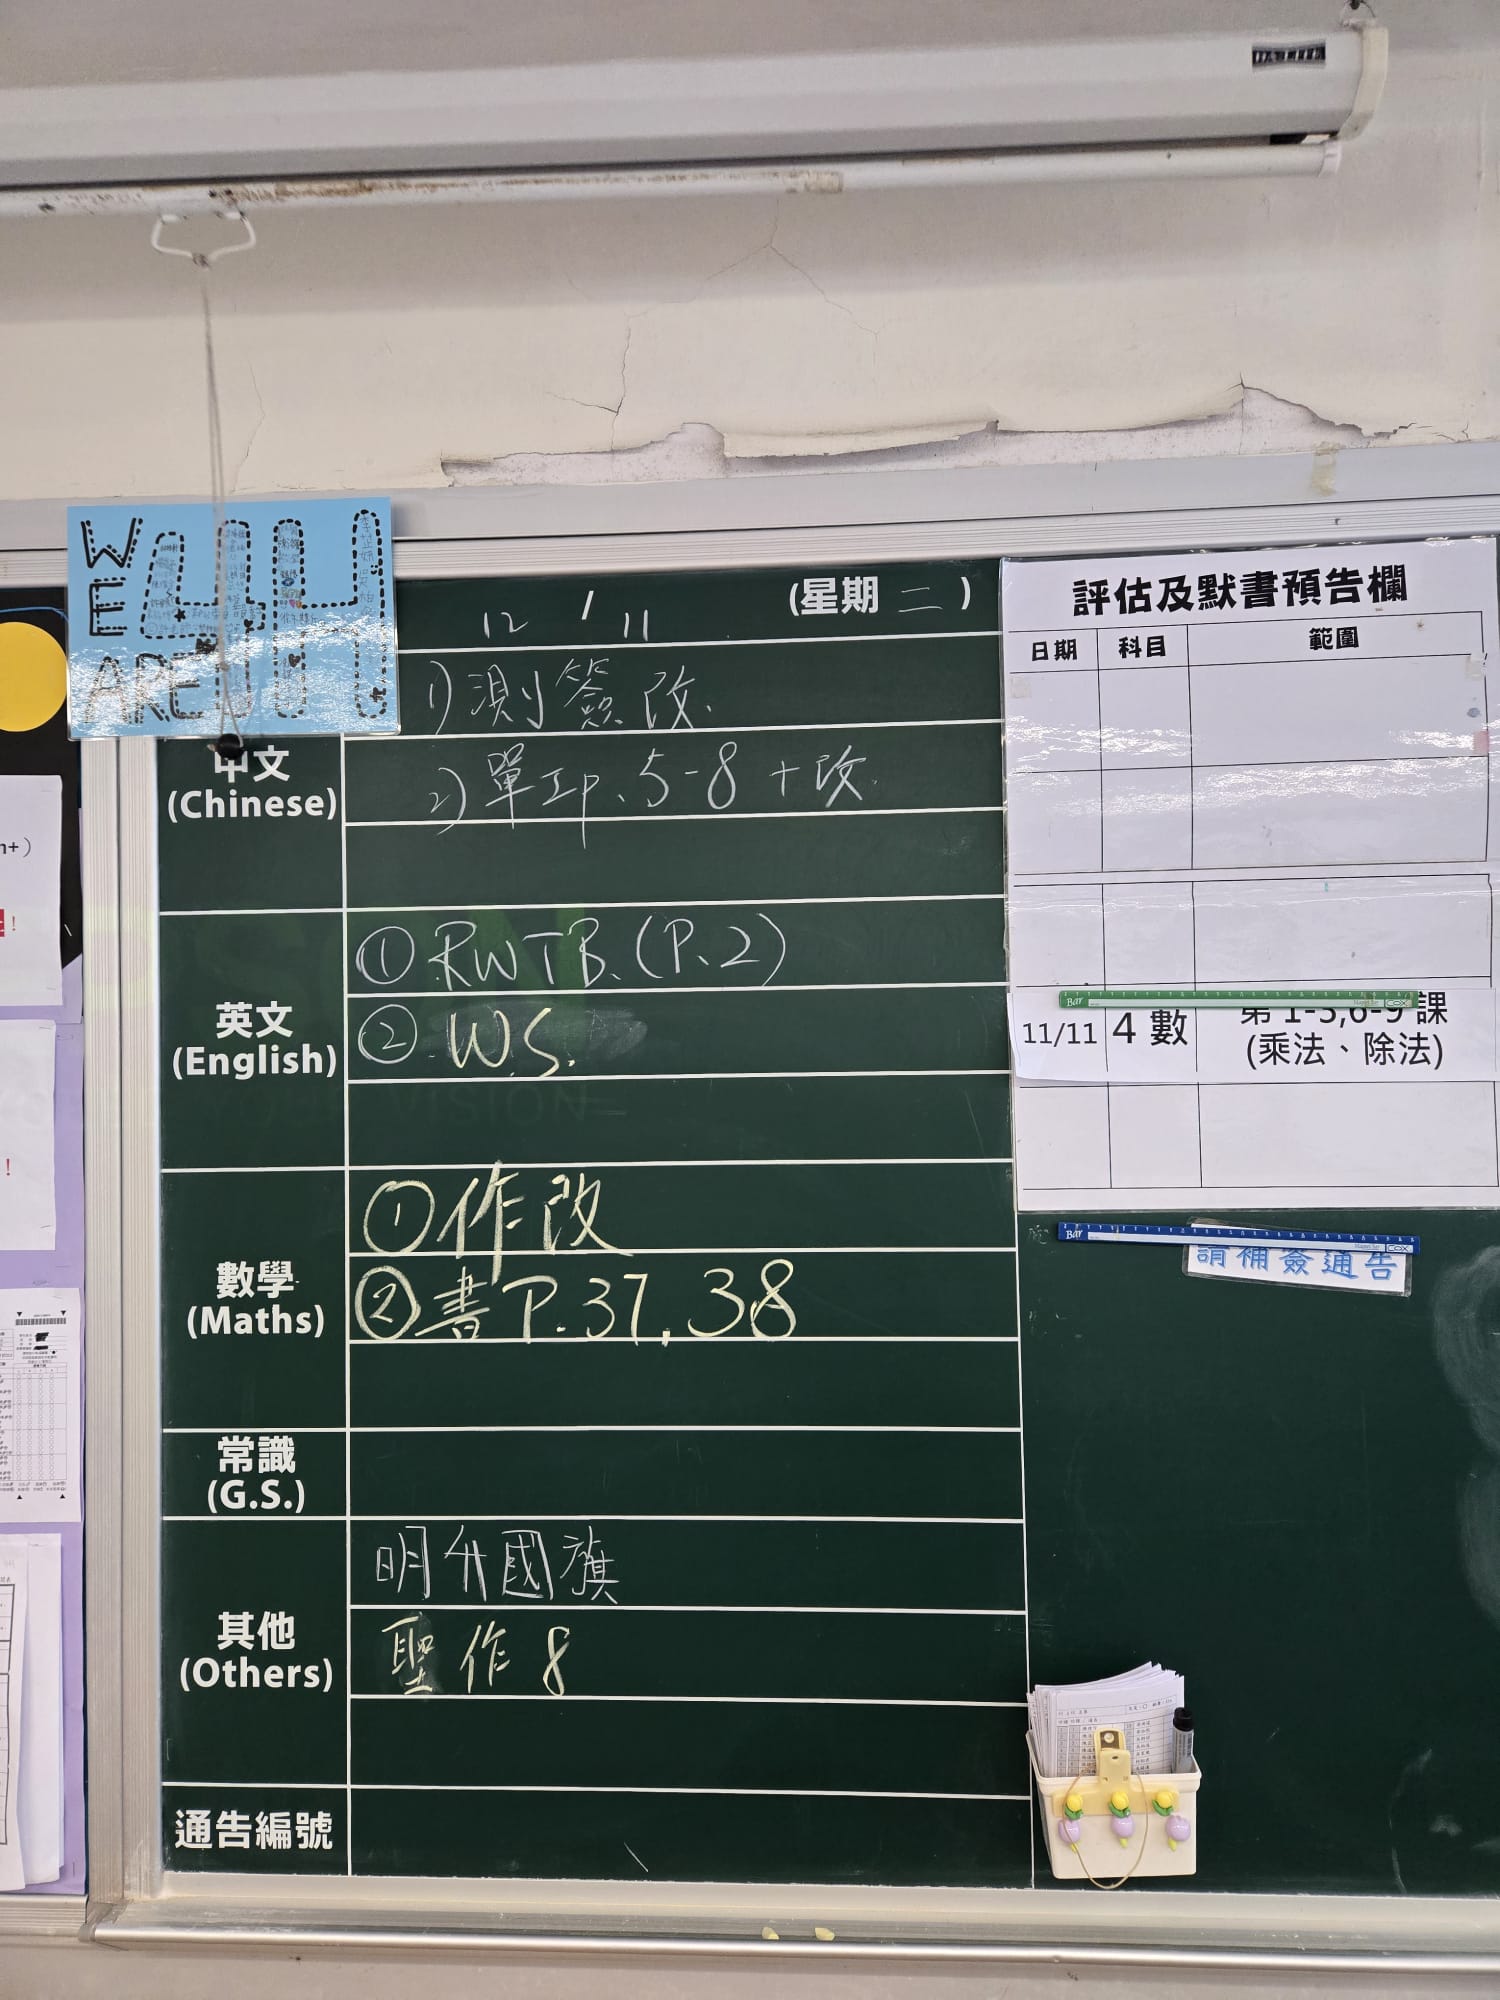 WE
ARE
12 / 11 (星期 二 )
1) 測簽改.
中文
(Chinese)
2) 單工P. 5-8 + 改.
英文
(English)
① RWTB. (P. 2)
② W.S.
數學
(Maths)
① 作改
② 書 P. 37, 38
常識
(G.S.)
其他
(Others)
明升國旗
聖作 8
通告編號
評估及默書預告欄
日期 科目 範圍
Bar Cox
11/11 4 數 第 1-3,6-9 課
(乘法、除法)
Bar Cox
請補簽通告